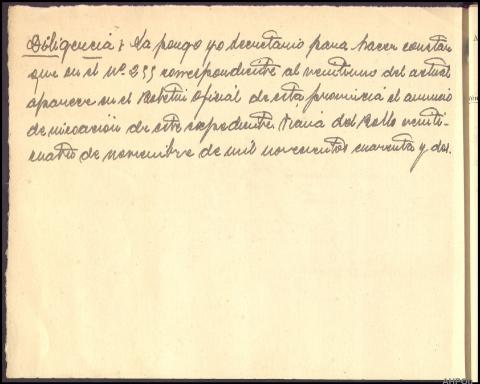 Diligencia: La pongo yo Secretario para hacer constar
que en el nº 255 correspondiente al veintiuno del actual
aparece en el Boletin Oficial de esta provincia el anuncio
de incoación de este expediente. Viana del Bollo veinti-
cuatro de noviembre de mil novecientos cuarenta y dos.